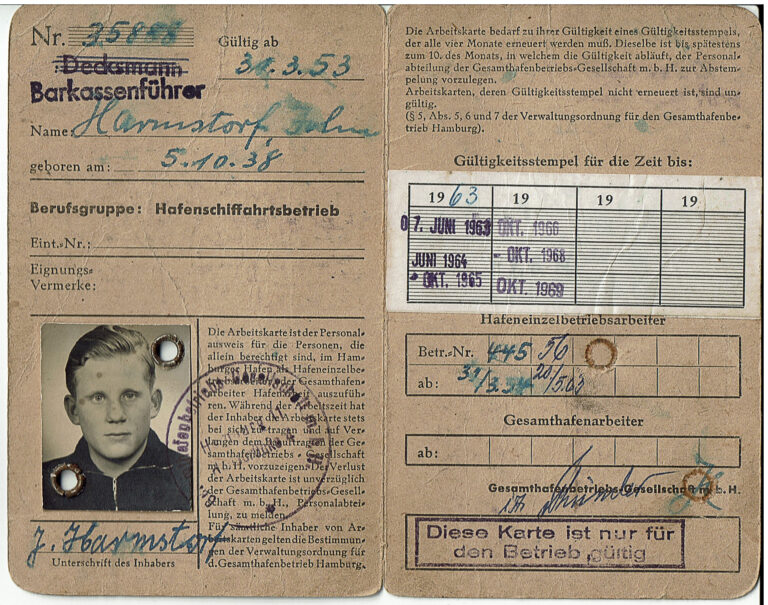 Nr. 35888
Gültig ab
31.3.53
Decksmann
Barkassenführer
Name: Harmstorf, John
geboren am: 5.10.38
Berufsgruppe: Hafenschiffahrtsbetrieb
Eint.-Nr.:
Eignungs-
Vermerke:
Die Arbeitskarte ist der Personal-
ausweis für die Personen, die
allein berechtigt sind, im Ham-
burger Hafen als Hafeneinzelbe-
der Gesamthafen-
arbeiter Hafen auszufüh-
ren. Während der Arbeitszeit hat
der Inhaber die Arbeitskarte stets
bei sich zu tragen und auf Ver-
langen dem Beauftragten der Ge-
samthafenbetriebs-Gesellschaft
m. b. H. vorzuzeigen. Der Verlust
der Arbeitskarte ist unverzüglich
der Gesamthafenbetriebs-Gesell-
schaft m. b. H., Personalabtei-
lung, zu melden.
Für sämtliche Inhaber von Ar-
beitskarten gelten die Bestimmun-
gen der Verwaltungsordnung für
d. Gesamthafenbetrieb Hamburg.
J. Harmstorf
Unterschrift des Inhabers
Die Arbeitskarte bedarf zu ihrer Gültigkeit eines Gültigkeitsstempels,
der alle vier Monate erneuert werden muß. Dieselbe ist bis spätestens
zum 10. des Monats, in welchem die Gültigkeit abläuft, der Personal-
abteilung der Gesamthafenbetriebs-Gesellschaft m. b. H. zur Abstem-
pelung vorzulegen.
Arbeitskarten, deren Gültigkeitsstempel nicht erneuert ist, sind un-
gültig.
(§ 5, Abs. 5, 6 und 7 der Verwaltungsordnung für den Gesamthafenbe-
trieb Hamburg).
Gültigkeitsstempel für die Zeit bis:
1963 19 19 19
07. JUNI 1963 OKT. 1966
JUNI 1964 - OKT. 1968
OKT. 1965 OKT. 1969
Hafeneinzelbetriebsarbeiter
Betr.-Nr. 445 56
ab: 20/5.63
Gesamthafenarbeiter
ab:
Gesamthafenbetriebs-Gesellschaft m. b. H.
Diese Karte ist nur für
den Betrieb gültig